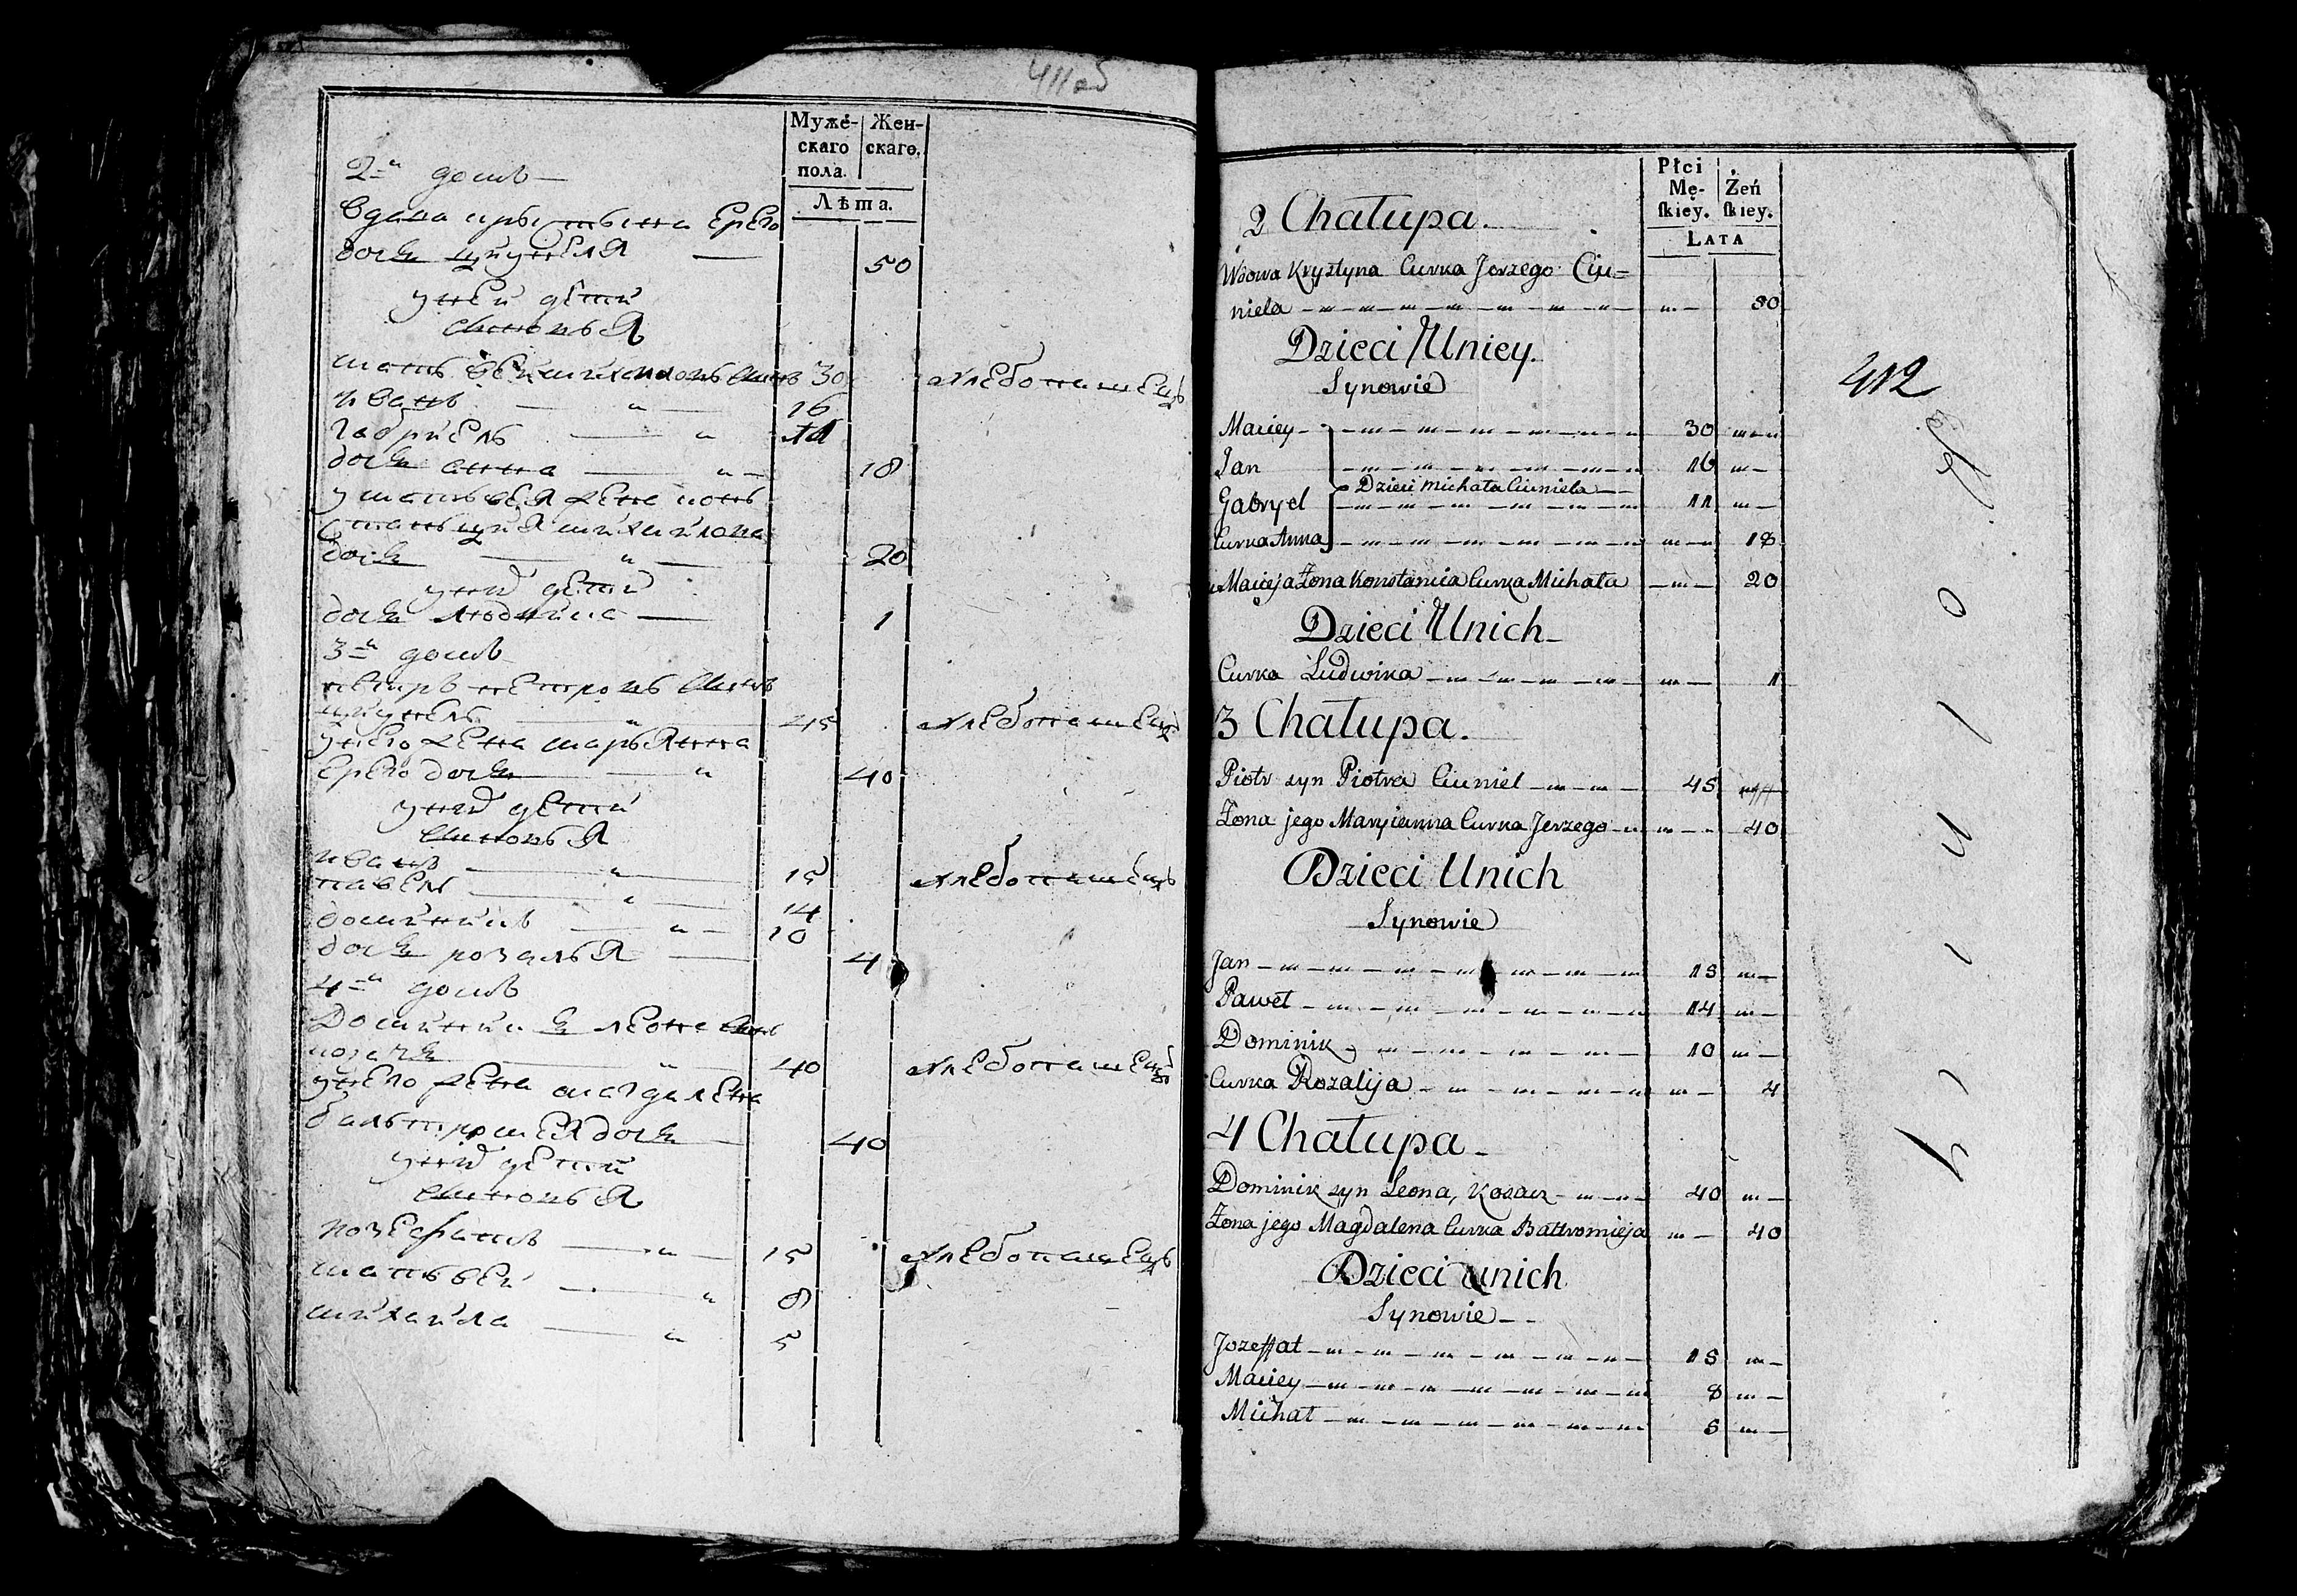 411об
Мужé-
скаго
пола.
Жен-
скаго.
Лѣта.
2й домъ —
вдова крыстына Ерего
дочь цıунеля — 50
у ней дети
сыновья
матьвей михаловъ сынъ 30 хлебопашецъ
иванъ — " — 16
габриель — " 11
дочь анна — " — 18
у матьвея жена констанция михайлова
дочь — " — 20
у них дети
дочь людвика — 1
3й домъ
петръ петровъ сынъ
цıунель — " — 45 хлебопашецъ
у него жена марьянна
Ерего дочь — " 40
у них дети
сыновья
иванъ — " — 15 хлебопашецъ
павелъ — " — 14
доминикъ — " — 10
дочь розалья — 4
4й домъ
Доминикъ леона сынъ
козачь — " 40 хлебопашецъ
у него жена магдалена
бальтромея дочь — 40
у них дети
сыновья
иозефатъ — " — 15 хлебопашецъ
матьвей — " 8
михайла — " 5
Płci
Mę-
ſkiey.
Żeń
ſkiey.
LATA
2 Chałupa.
Wdowa Krystyna Curka Jerzego Ciu=
niela 50
Dzieci Uniey.
Synowie
412
Maciey 30
Jan 16
Dzieci Michała Ciuniela
Gabryel 11
Curka Anna 18
u Macieja Żona Konstancia Curka Michała 20
Dzieci Unich
Curka Ludwika 1
3 Chałupa.
Piotr syn Piotra Ciuniel 45
Żona jego Maryianna Curka Jerzego 40
Dzieci Unich
Synowie
Jan 15
Paweł 14
Dominik 10
Curka Rozalija 4
4 Chałupa
Dominik syn Leona, Kozacz 40
Żona jego Magdalena Curka Bałtromieja 40
Dzieci unich
Synowie
Jozeffat 15
Maciey 8
Michał 5